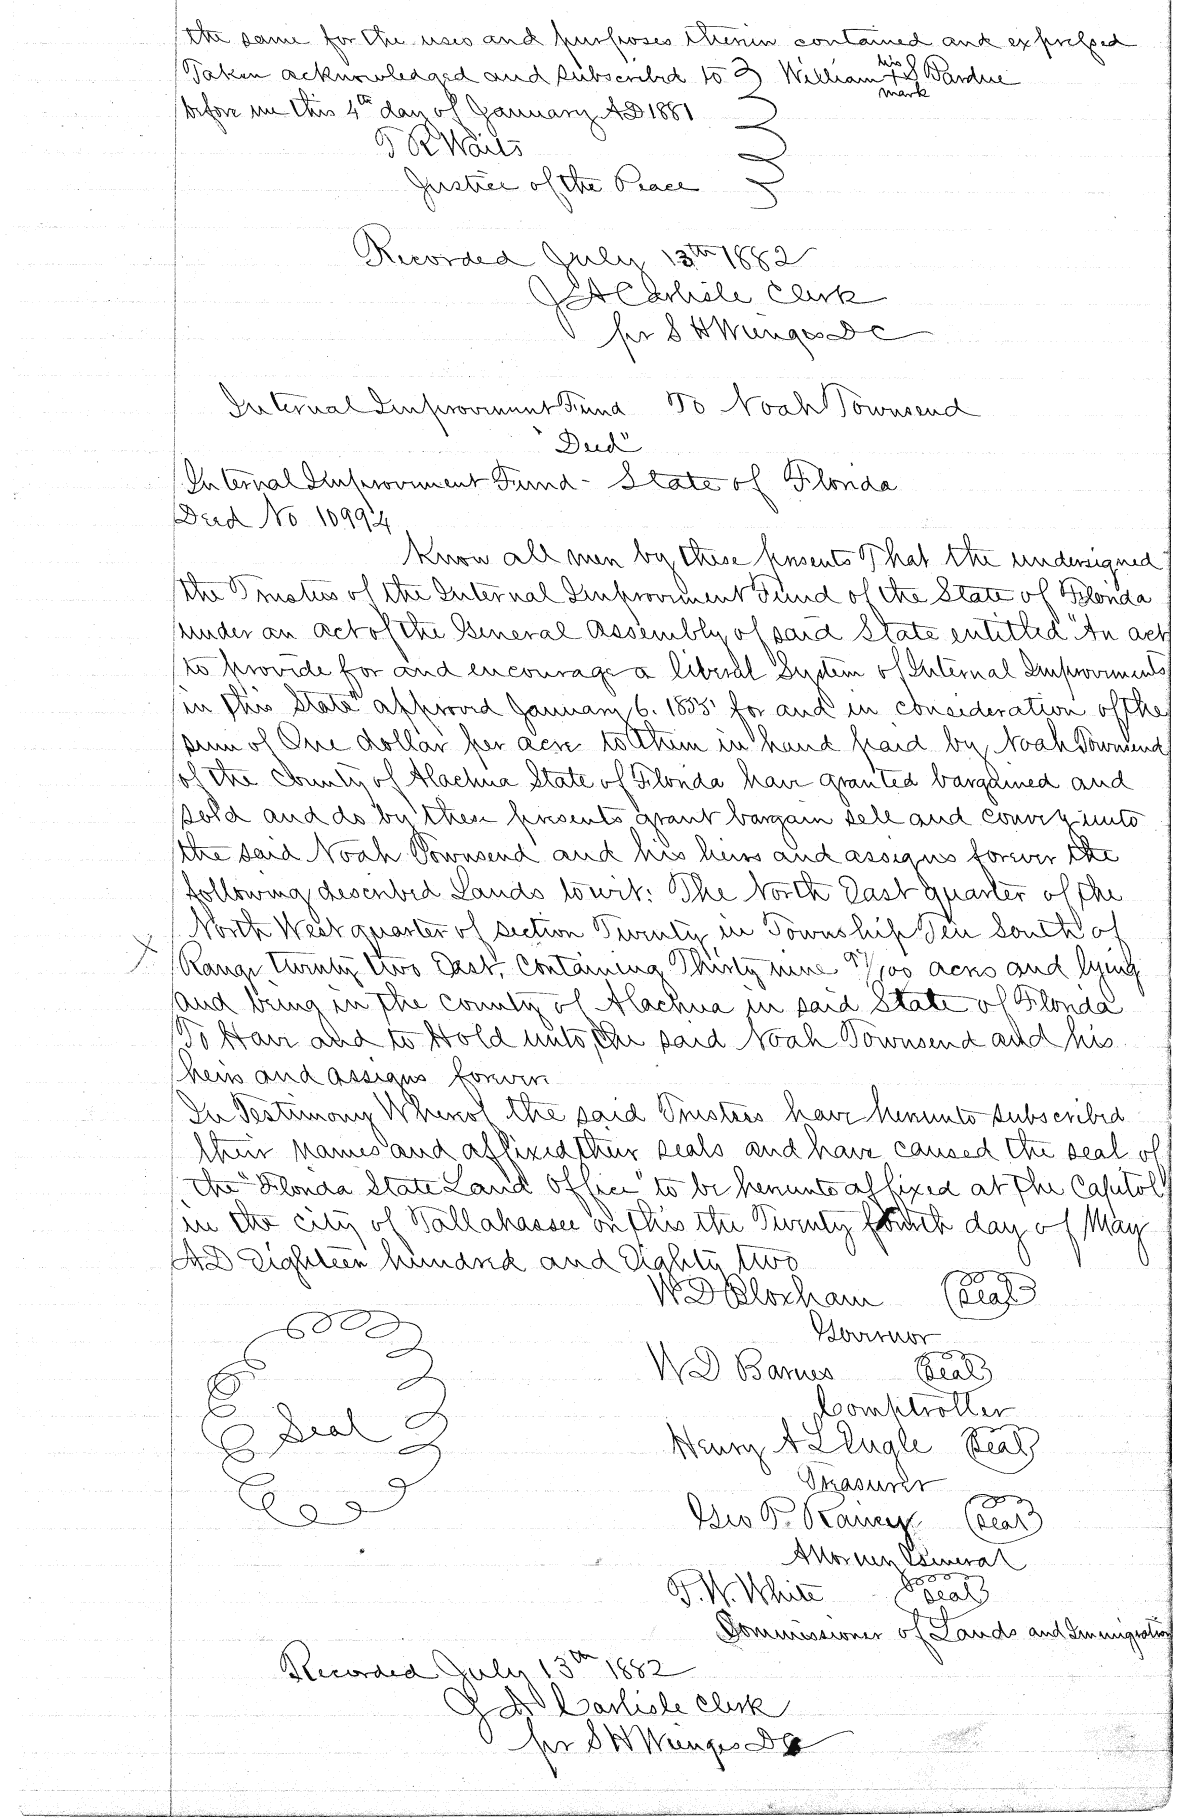 the same for the uses and purposes therein contained and expressed
Taken acknowledged and subscribed to William his + mark S Pardue
before me this 4th day of January AD 1881
T R Waits
Justice of the Peace
Recorded July 13th 1882
J A Carlisle Clerk
per S H Wienges DC
Internal Improvement Fund To Noah Townsend
"Deed"
Internal Improvement Fund - State of Florida
Deed No 10994
Know all men by these presents That the undersigned
the Trustees of the Internal Improvement Fund of the State of Florida
under an act of the General Assembly of said State entitled "An act
to provide for and encourage a liberal System of Internal Improvements
in this State" approved January 6. 1855 for and in consideration of the
sum of One dollar per acre to them in hand paid by Noah Townsend
of the County of Alachua State of Florida have granted bargained and
sold and do by these presents grant bargain sell and convey unto
the said Noah Townsend and his heirs and assigns forever the
following described Lands towit: The North East quarter of the
North West quarter of section Twenty in Township Ten South of
X Range twenty two East, Containing Thirty nine /100 acres and lying
and being in the County of Alachua in said State of Florida
To Have and to Hold unto the said Noah Townsend and his
heirs and assigns forever
In Testimony Whereof the said Trustees have hereunto subscribed
their names and affixed their seals and have caused the seal of
the "Florida State Land Office" to be hereunto affixed at the Capitol
in the city of Tallahassee on this the Twenty fourth day of May
AD Eighteen hundred and Eighty two
W D Bloxham Seal
Governor
W D Barnes Seal
Comptroller
Seal
Henry A L'Engle Seal
Treasurer
Geo P. Raney Seal
Attorney General
P. W. White Seal
Commissioner of Lands and Immigration
Recorded July 13th 1882
J A Carlisle Clerk
per S H Wienges DC